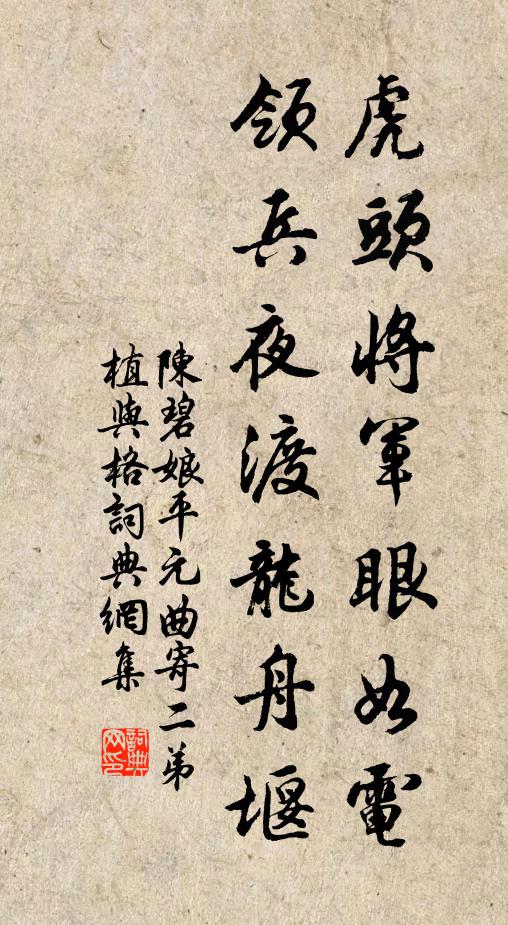 虎頭將軍眼如電
領兵夜渡龍舟堰
陳碧娘平元曲寄二弟
植與格詞典網集
詞典网印